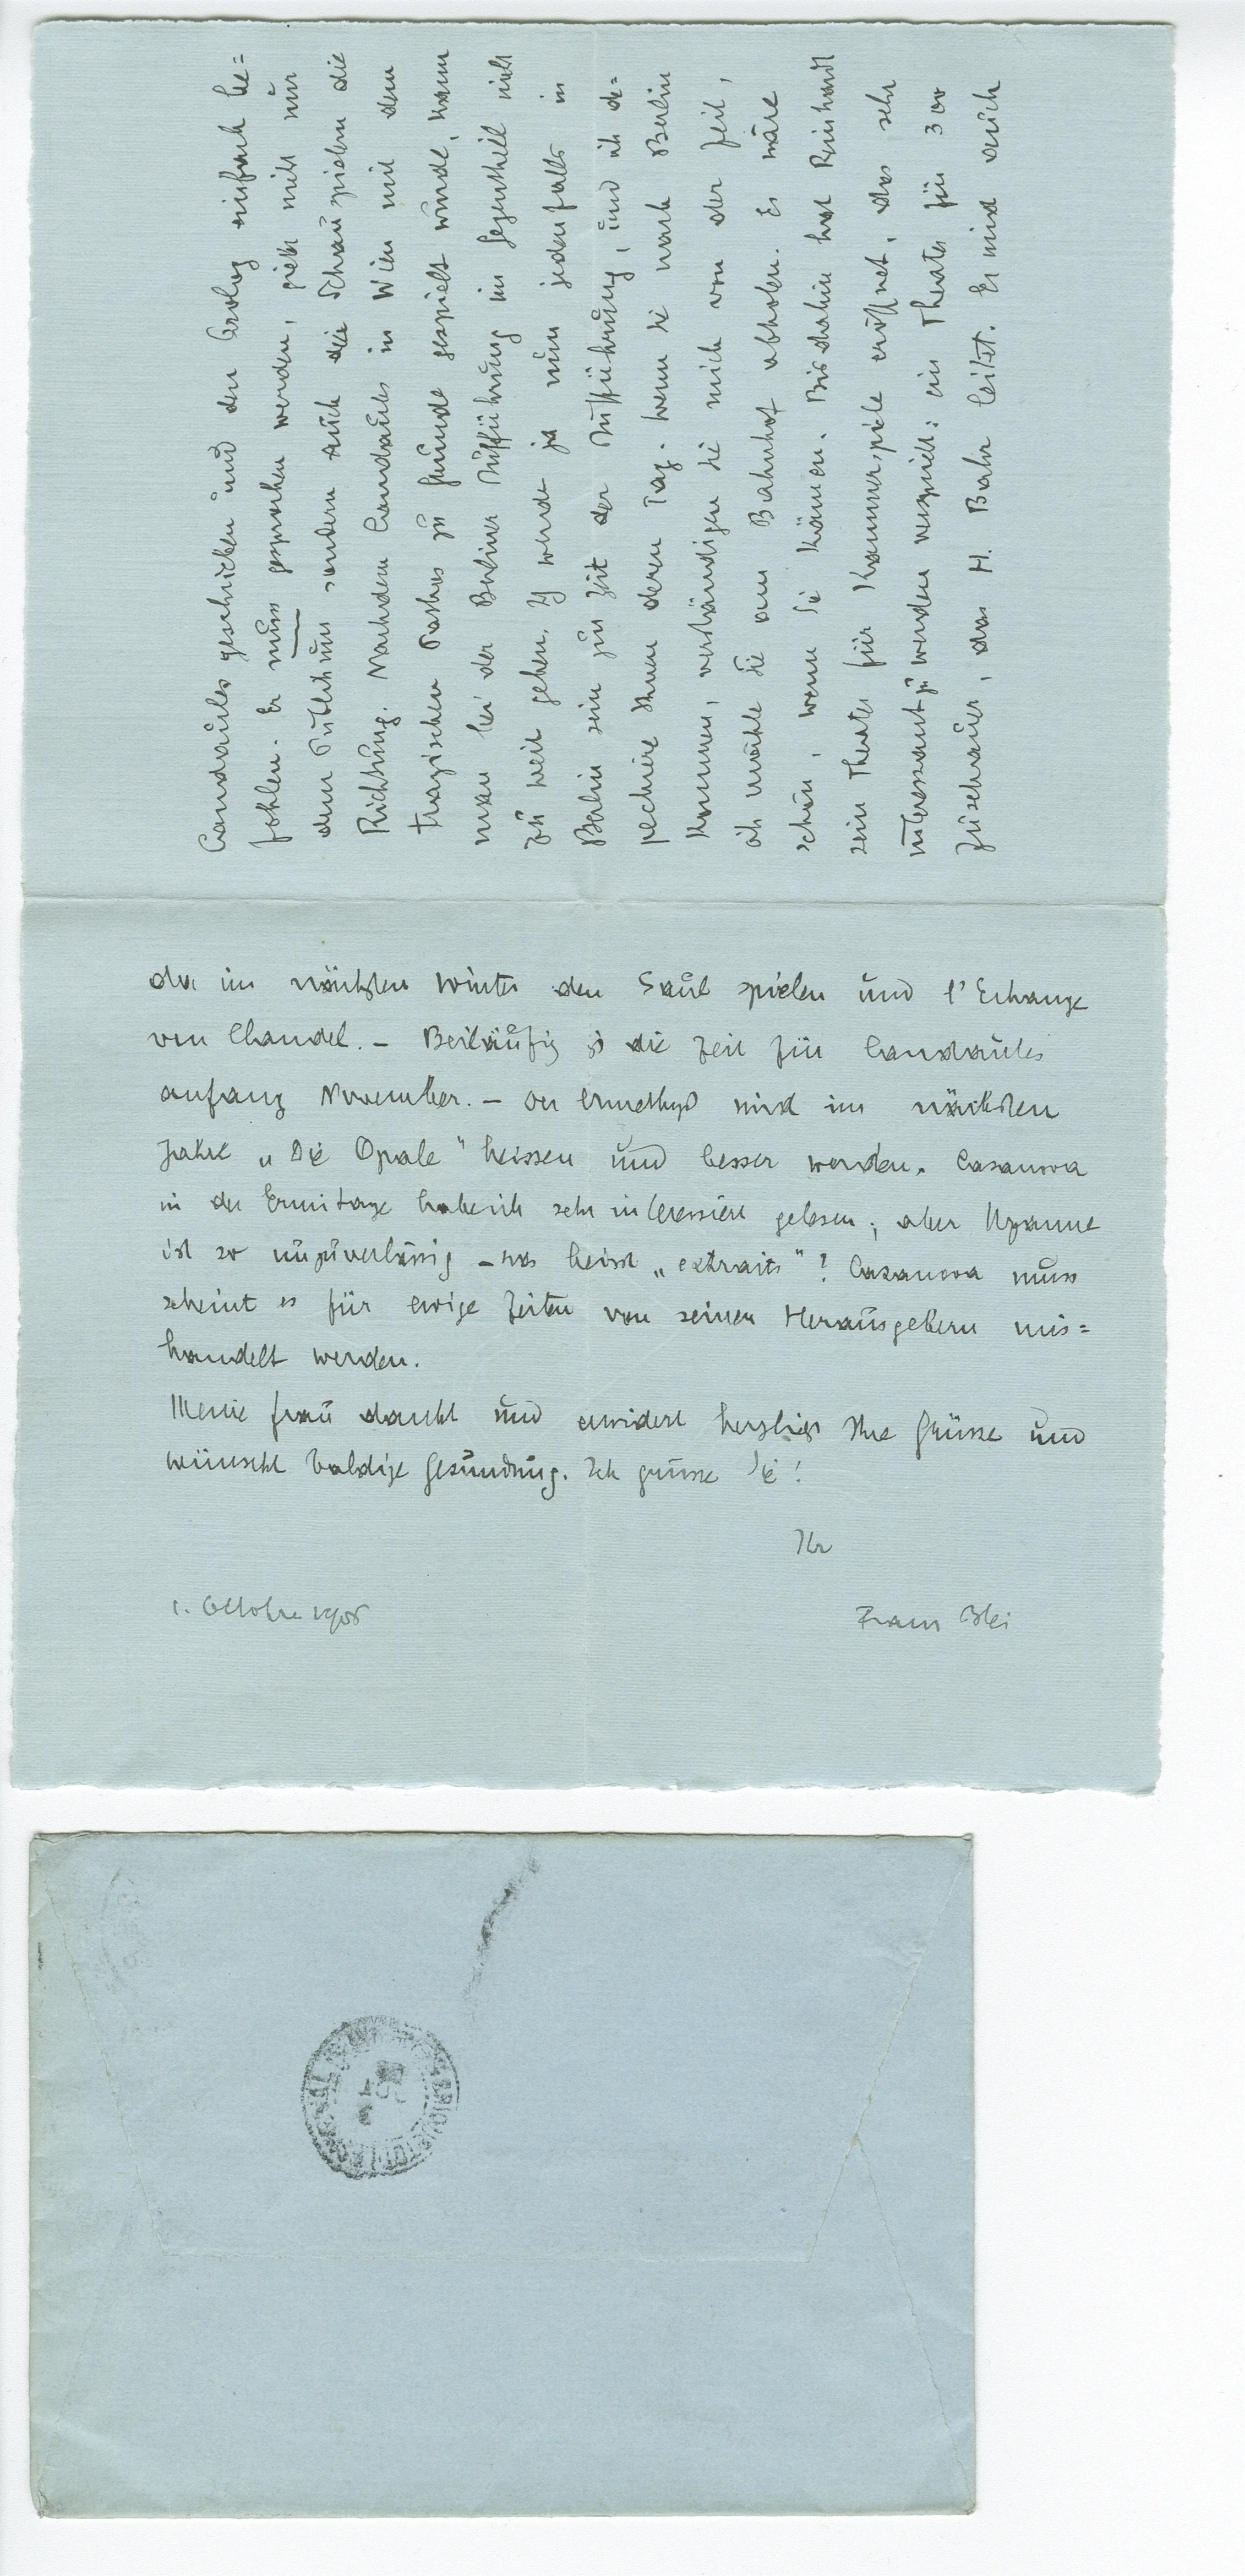 Candaules geschrieben und den Prolog einfach be=
fohlen. Er muss gesprochen werden, giebt nicht nur
dem Publikum sondern auch die Schauspielern die
Richtung. Nachdem Candaules in Wien mit dem
tragischen Pathos zu Grunde gespielt wurde, kann
man bei der Berliner Aufführung im Gegentheil nicht
zu weit gehen. Ich werde ja nun jedenfalls in
Berlin sein zur Zeit der Aufführung, und ich de=
pechiere Ihnen deren Tag. Wenn Sie nach Berlin
kommen, verständigen Sie mich von der Zeit,
ich möchte Sie am Bahnhof abholen. Es wäre
schön, wenn Sie kämen. Bis dahin hat Reinhardt
sein Theater für Kammerspiele eröffnet, das sehr
interessant zu werden verspricht: ein Theater für 300
Zuschauer, das H. Bahr leitet. Er wird auch
da im nächsten Winter den Saul spielen und l'Echange
von Claudel. – Beiläufig ist die Zeit für Candaules
anfang November. – Der Amethyst wird im nächsten
Jahre „Die Opale" heissen und besser werden. Casanova
in der Ermitage habe ich sehr interessiert gelesen; aber Uzanne
ist so unzuverlässig – was heisst „extraits"? Casanova muss
scheint es für ewige Zeiten von seinen Herausgebern mis=
handelt werden.
Meine Frau dankt und erwidert herzlichst Ihre Grüsse und
wünscht baldige Gesundung. Ich grüsse Sie!
Ihr
1. Octobre 1906
Franz Blei